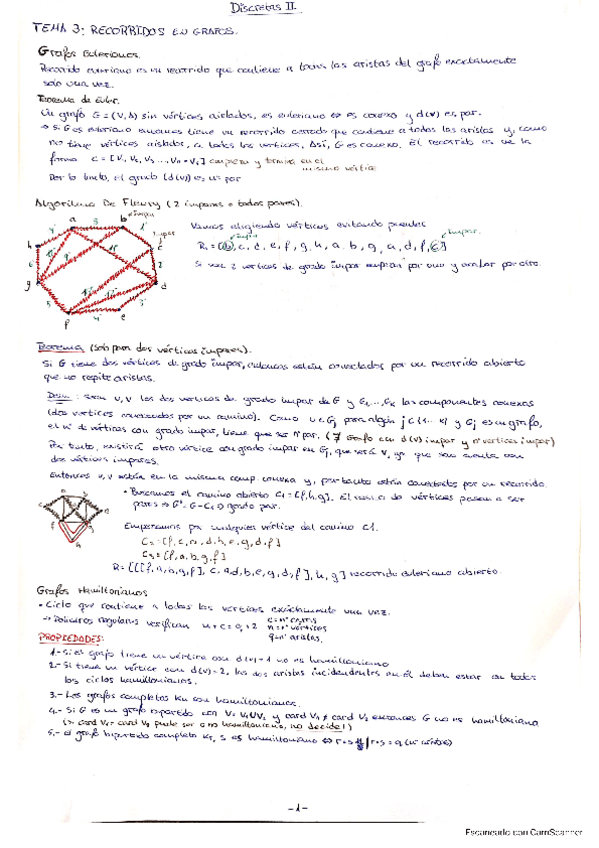 Discretas II.
TEMA 3: RECORRIDOS EN GRAFOS.
Grafos Eulerianos.
Recorrido euleriano es un recorrido que contiene a todas las aristas del grafo exactamente
solo una vez.
Teorema de Euler.
Un grafo G = (V, A) sin vértices aislados, es euleriano ⇔ es conexo y d(v) es par.
→ Si G es euleriano entonces tiene un recorrido cerrado que contiene a todas las aristas y, como
no tiene vértices aislados, a todos los vértices. Así, G es conexo. El recorrido es de la
forma C = [V₁, V₂, V₃ ..., Vn = V₁] empieza y termina en el
mismo vértice
Por lo tanto, el grado (d(v)) es par
Algoritmo De Fleury (2 impares o todos pares).
impar
a
b
c
d
e
f
g
h
impar
Vamos eligiendo vértices evitando puentes
impar
impar.
R = [b, c, d, e, f, g, h, a, b, g, a, d, f, c]
Si son 2 vértices de grado impar empezar por uno y acabar por otro.
Teorema (solo para dos vértices impares).
Si G tiene dos vértices de grado impar, entonces están conectados por un recorrido abierto
que no repite aristas.
Dem: sean u, v los dos vértices de grado impar de G y G₁...Gk las componentes conexas
(dos vértices conectados por un camino). Como u ∈ Gj para algún j ∈ {1... k} y Gj es un grafo,
el nº de vértices con grado impar, tiene que ser nº par. (∄ Grafo con d(v) impar y nº vértices impar)
Por tanto, existirá otro vértice con grado impar en Gj, que será v, ya que solo cuenta con
dos vértices impares.
Entonces u, v están en la misma comp conexa y, por tanto están conectados por un recorrido.
• Buscamos el camino abierto C₁ = [f, h, g]. El resto de vértices pasan a ser
pares ⇒ G' = G - C₁ ⊃ grado par.
Empezamos por cualquier vértice del camino C1.
C₂ = [f, c, a, d, h, e, g, d, f]
C₃ = [f, a, b, g, f]
R = [[[f, a, b, g, f], c, a, d, b, e, g, d, f], h, g] recorrido euleriano abierto
Grafos Hamiltonianos
• Ciclo que contiene a todos los vértices exactamente una vez.
→ Poliedros regulares verifican n + c = q + 2
c = nº caras
n = nº vértices
q = nº aristas.
PROPIEDADES:
1.- Si el grafo tiene un vértice con d(v) = 1 no es hamiltoniano
2.- Si tiene un vértice con d(v) = 2, las dos aristas incidentes en él deben estar en todos
los ciclos hamiltonianos.
3.- Los grafos completos Kn son hamiltonianos.
4.- Si G es un grafo bipartido con V = V₁UV₂ y card V₁ ≠ card V₂ entonces G no es hamiltoniano
(si card V₁ = card V₂ puede ser o no hamiltoniano, no decide!)
5.- El grafo bipartido completo Kr, s es hamiltoniano ⇔ r = s
- 1 -
Escaneado con CamScanner